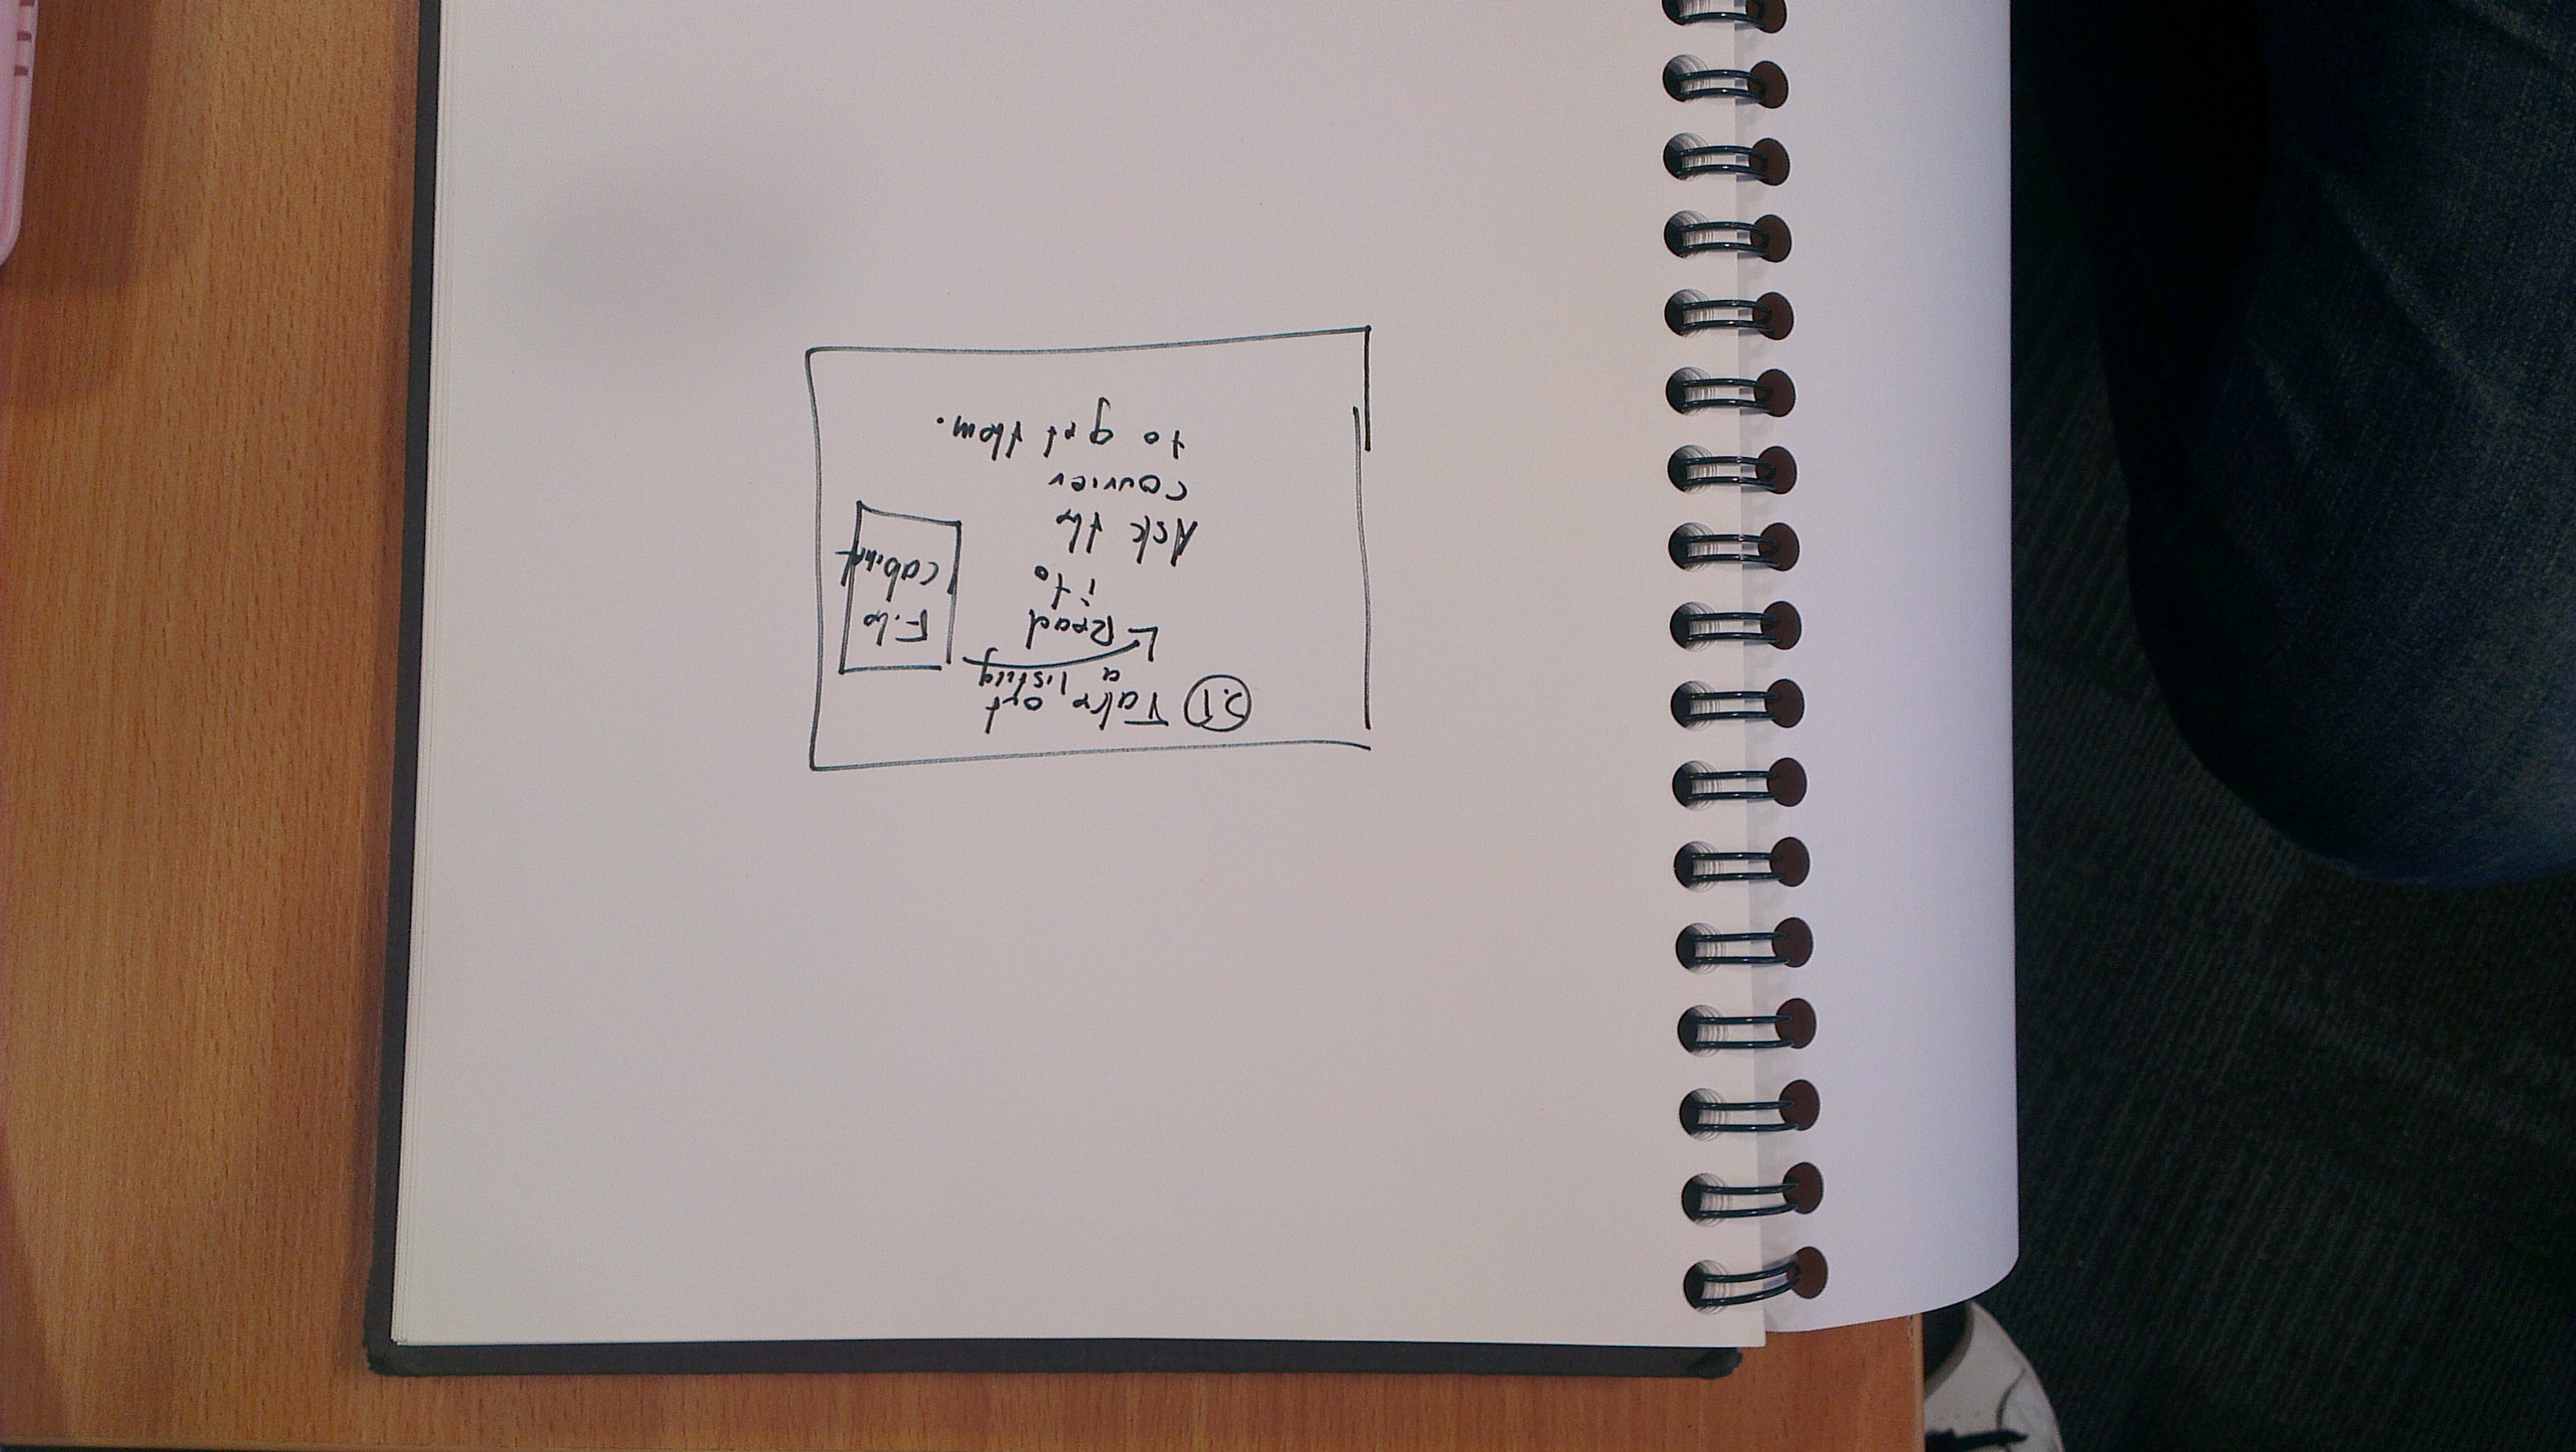 2.1 Take out
a listing
Read
ito
Ask the
courier
to get them.
File
cabinet